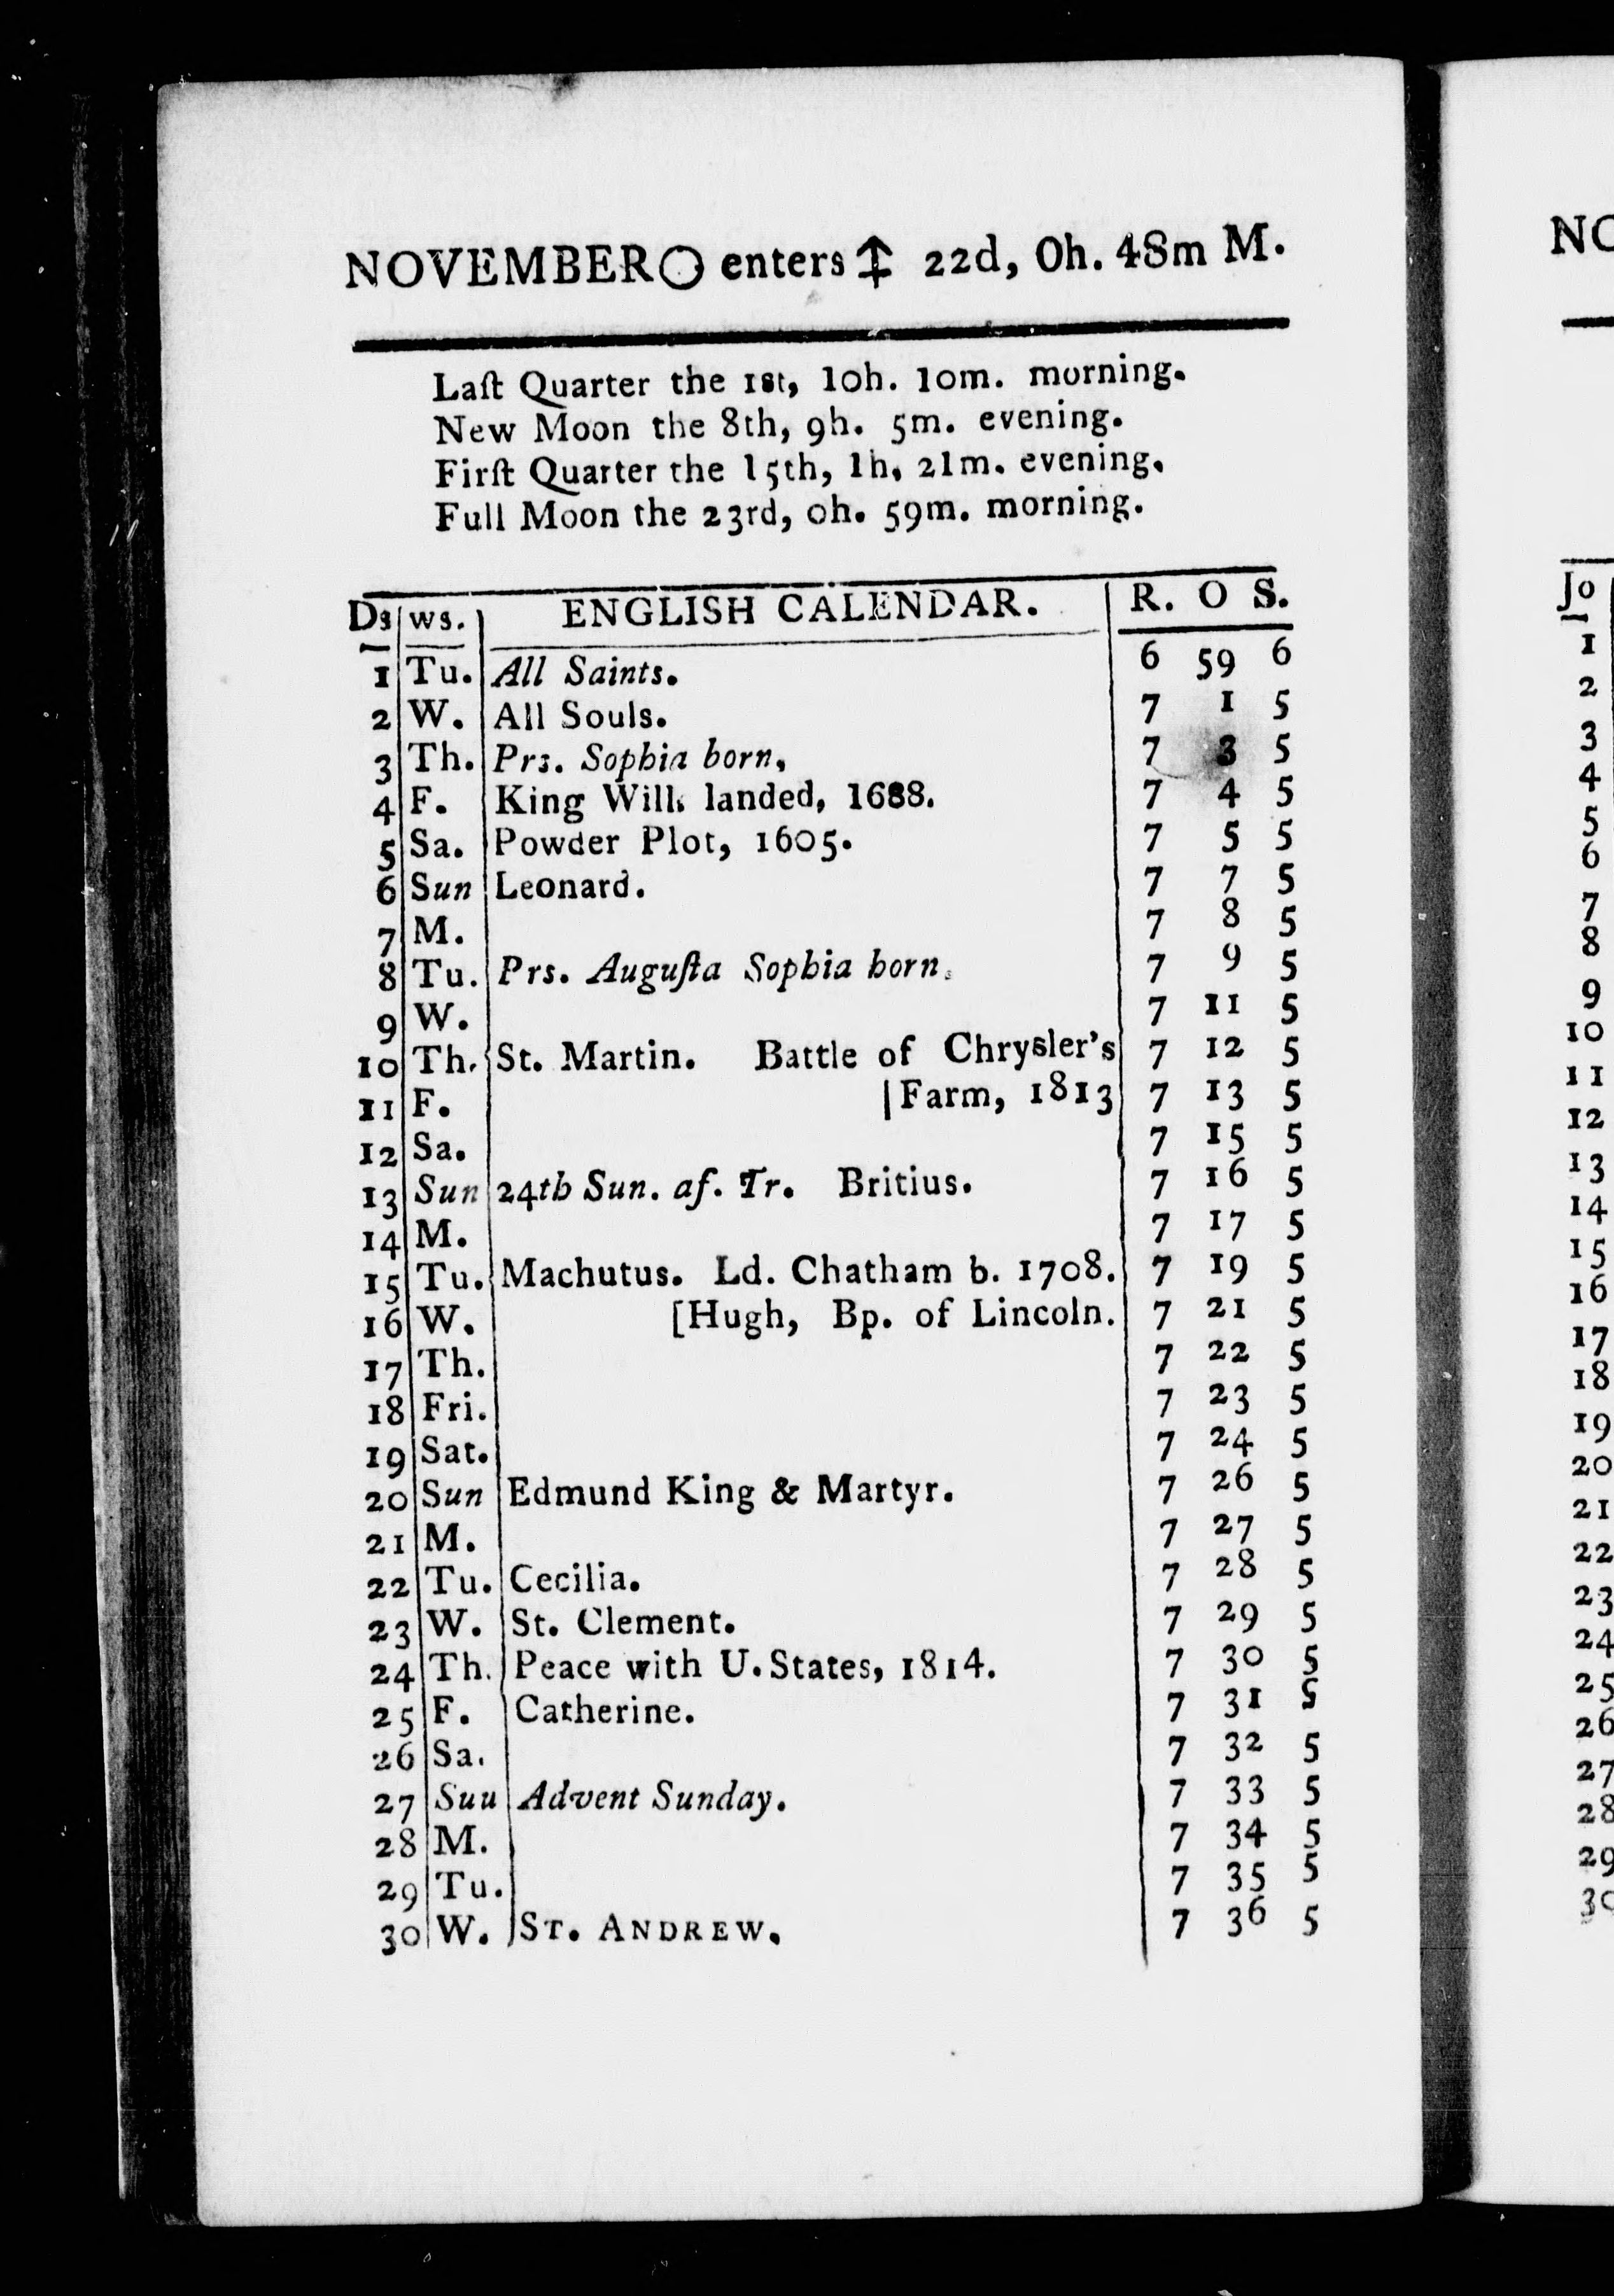 NOVEMBER ☉ enters ♐ 22d, 0h. 48m M.
Laſt Quarter the 1st, 10h. 10m. morning.
New Moon the 8th, 9h. 5m. evening.
Firſt Quarter the 15th, 1h, 21m. evening.
Full Moon the 23rd, 0h. 59m. morning.
Ds ws. ENGLISH CALENDAR. R. O S.
1 Tu. All Saints. 6 59 6
2 W. All Souls. 7 1 5
3 Th. Prs. Sophia born, 7 3 5
4 F. King Will. landed, 1688. 7 4 5
5 Sa. Powder Plot, 1605. 7 5 5
6 Sun Leonard. 7 7 5
7 M. 7 8 5
8 Tu. Prs. Auguſta Sophia born. 7 9 5
9 W. 7 11 5
10 Th. St. Martin. Battle of Chrysler's 7 12 5
11 F. |Farm, 1813 7 13 5
12 Sa. 7 15 5
13 Sun 24th Sun. af. Tr. Britius. 7 16 5
14 M. 7 17 5
15 Tu. Machutus. Ld. Chatham b. 1708. 7 19 5
16 W. [Hugh, Bp. of Lincoln. 7 21 5
17 Th. 7 22 5
18 Fri. 7 23 5
19 Sat. 7 24 5
20 Sun Edmund King & Martyr. 7 26 5
21 M. 7 27 5
22 Tu. Cecilia. 7 28 5
23 W. St. Clement. 7 29 5
24 Th. Peace with U. States, 1814. 7 30 5
25 F. Catherine. 7 31 5
26 Sa. 7 32 5
27 Suu Advent Sunday. 7 33 5
28 M. 7 34 5
29 Tu. 7 35 5
30 W. ST. ANDREW. 7 36 5
NO
Jo
1
2
3
4
5
6
7
8
9
10
11
12
13
14
15
16
17
18
19
20
21
22
23
24
25
26
27
28
29
30